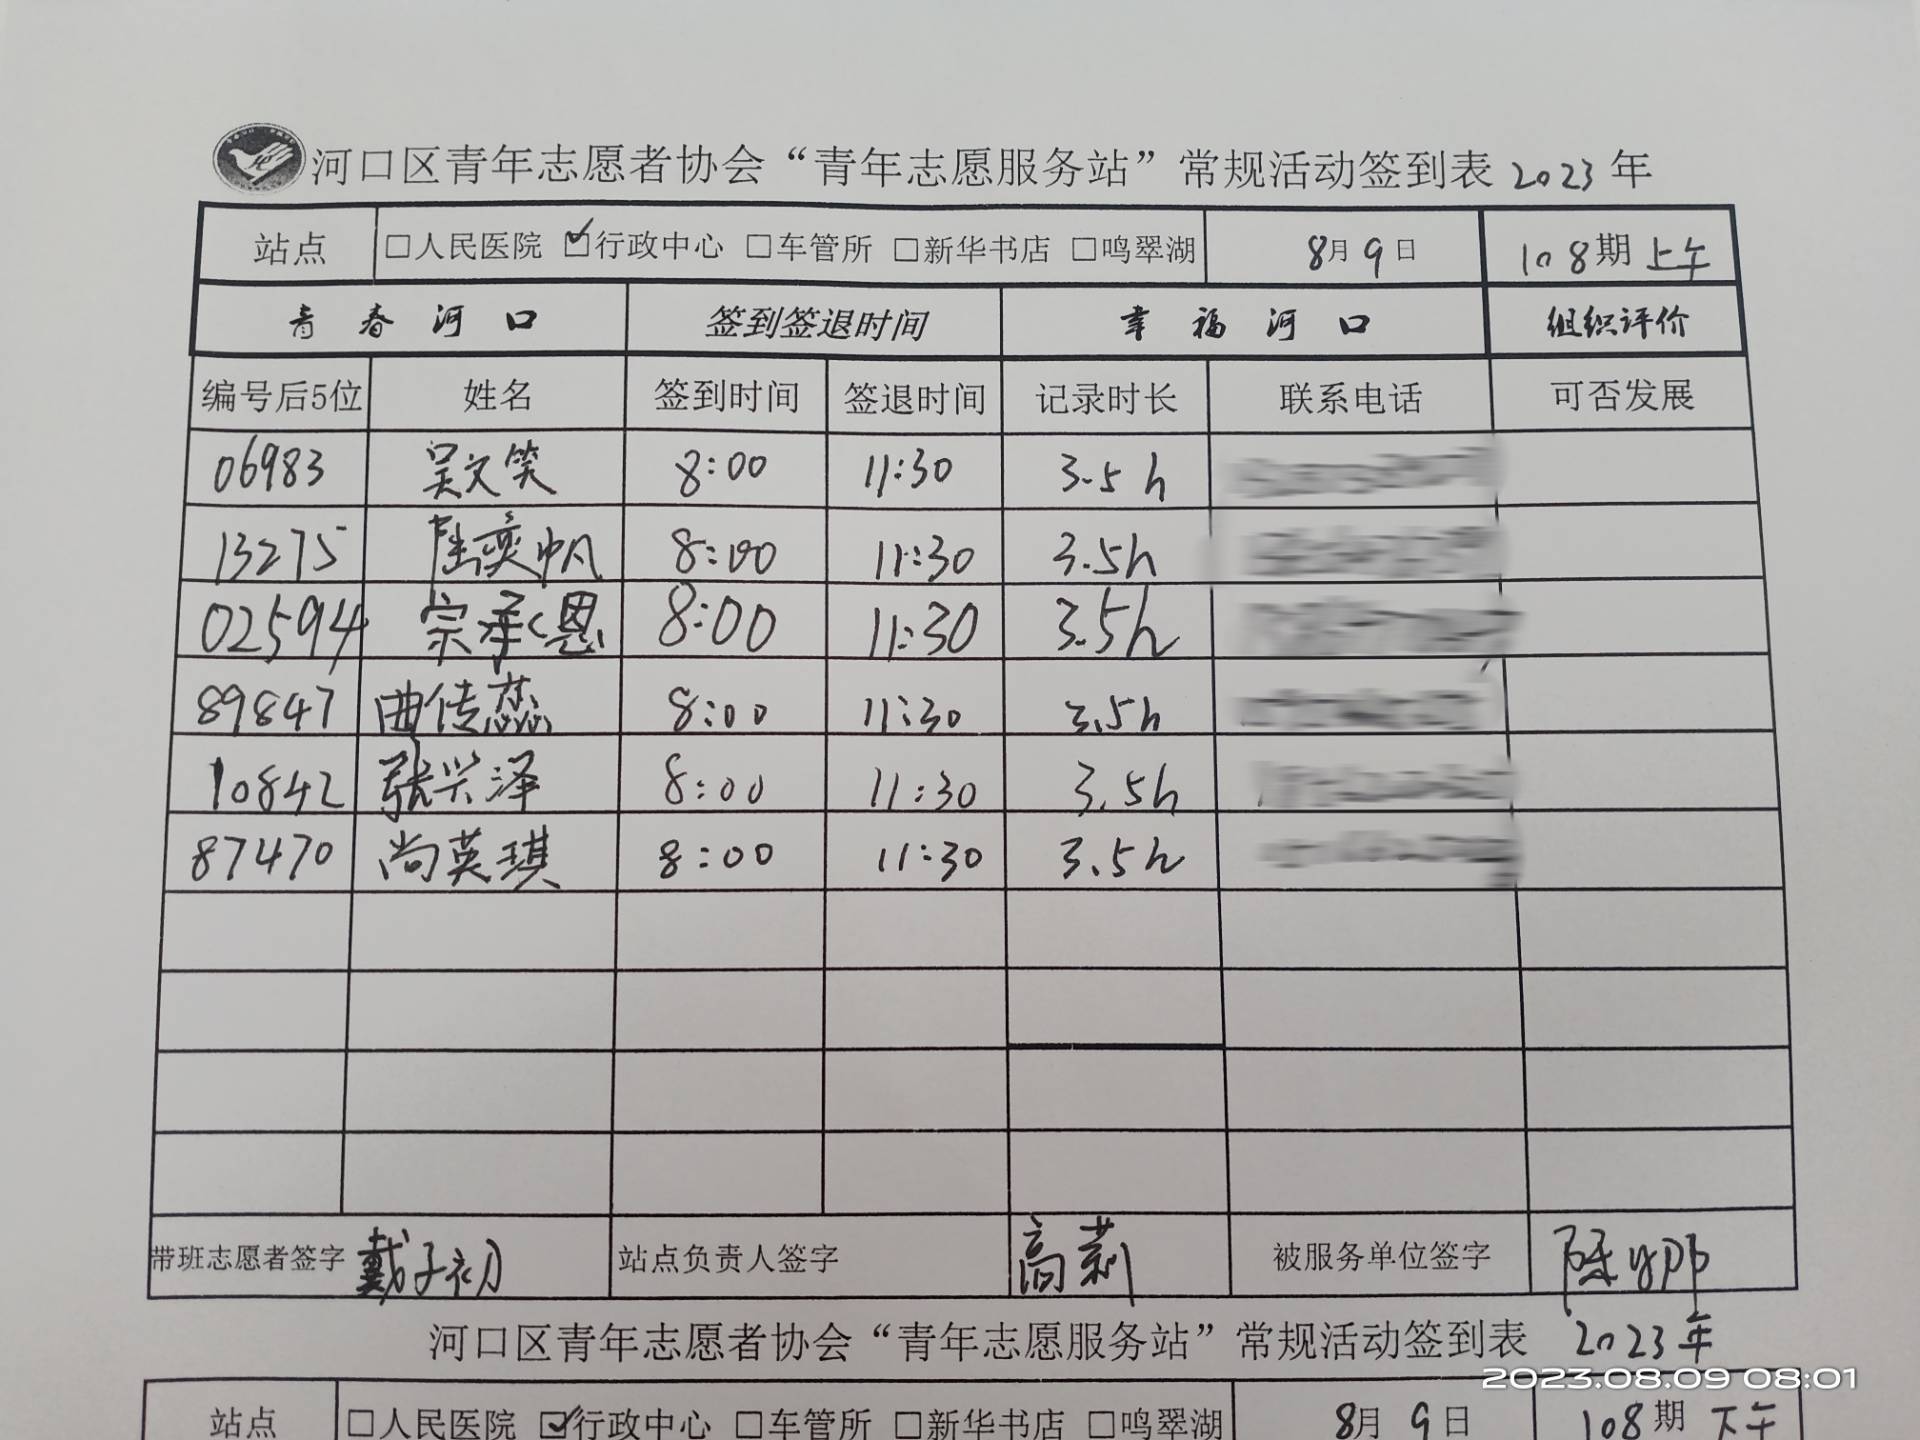 河口区青年志愿者协会“青年志愿服务站”常规活动签到表 2023年
站点 □人民医院 ☑行政中心 □车管所 □新华书店 □鸣翠湖 8月9日 108期 上午
青春河口 签到签退时间 幸福河口 组织评价
编号后5位 姓名 签到时间 签退时间 记录时长 联系电话 可否发展
06983 吴文笑 8:00 11:30 3.5h
13275 陆奕帆 8:00 11:30 3.5h
02594 宗承恩 8:00 11:30 3.5h
89847 曲传蕊 8:00 11:30 3.5h
10842 张兴泽 8:00 11:30 3.5h
87470 尚英琪 8:00 11:30 3.5h
带班志愿者签字 戴子初 站点负责人签字 高莉 被服务单位签字
河口区青年志愿者协会“青年志愿服务站”常规活动签到表 2023年
2023.08.09 08:01
站点 □人民医院 ☑行政中心 □车管所 □新华书店 □鸣翠湖 8月9日 108期 下午